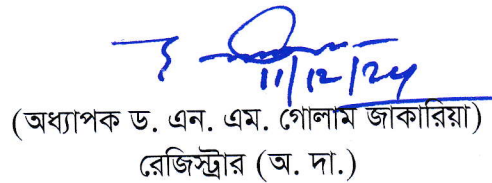 11/12/24
(অধ্যাপক ড. এন. এম. গোলাম জাকারিয়া)
রেজিস্ট্রার (অ. দা.)